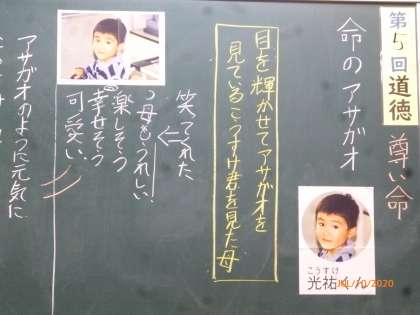 第5回道徳
尊い命
命のアサガオ
こうすけ
光祐くん
JUL/10/2020
目を輝かせてアサガオを
見ているこうすけ君を見た母
笑ってくれた
母もうれしい
楽しそう
幸せそう
可愛い
アサガオのように元気に